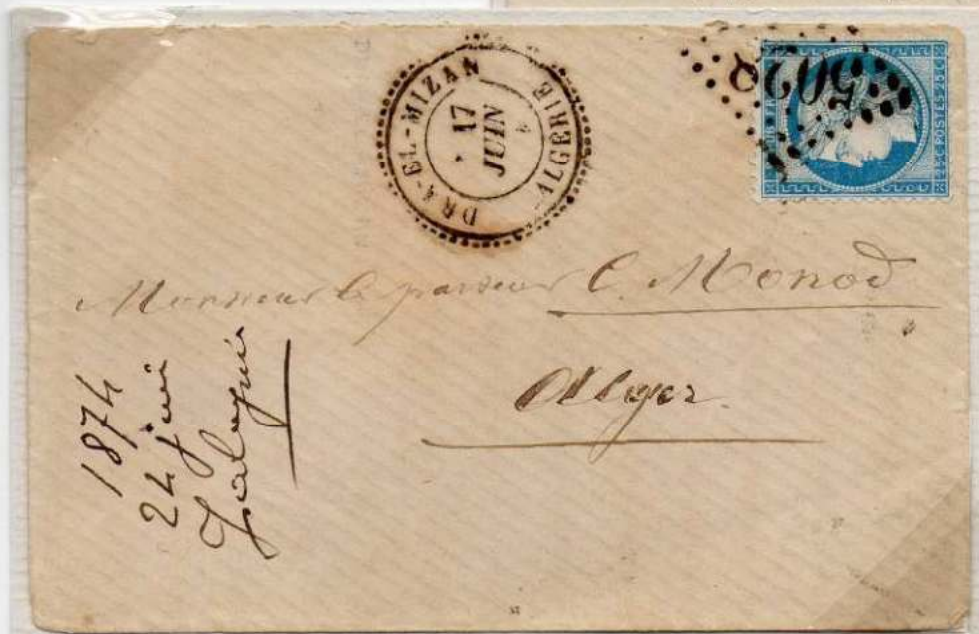 DRA-EL-MIZAN
ALGERIE
17
JUIN
5028
25 c. POSTES 25 c.
Monsieur le pasteur C. Monod
Alger
1874
24 juin